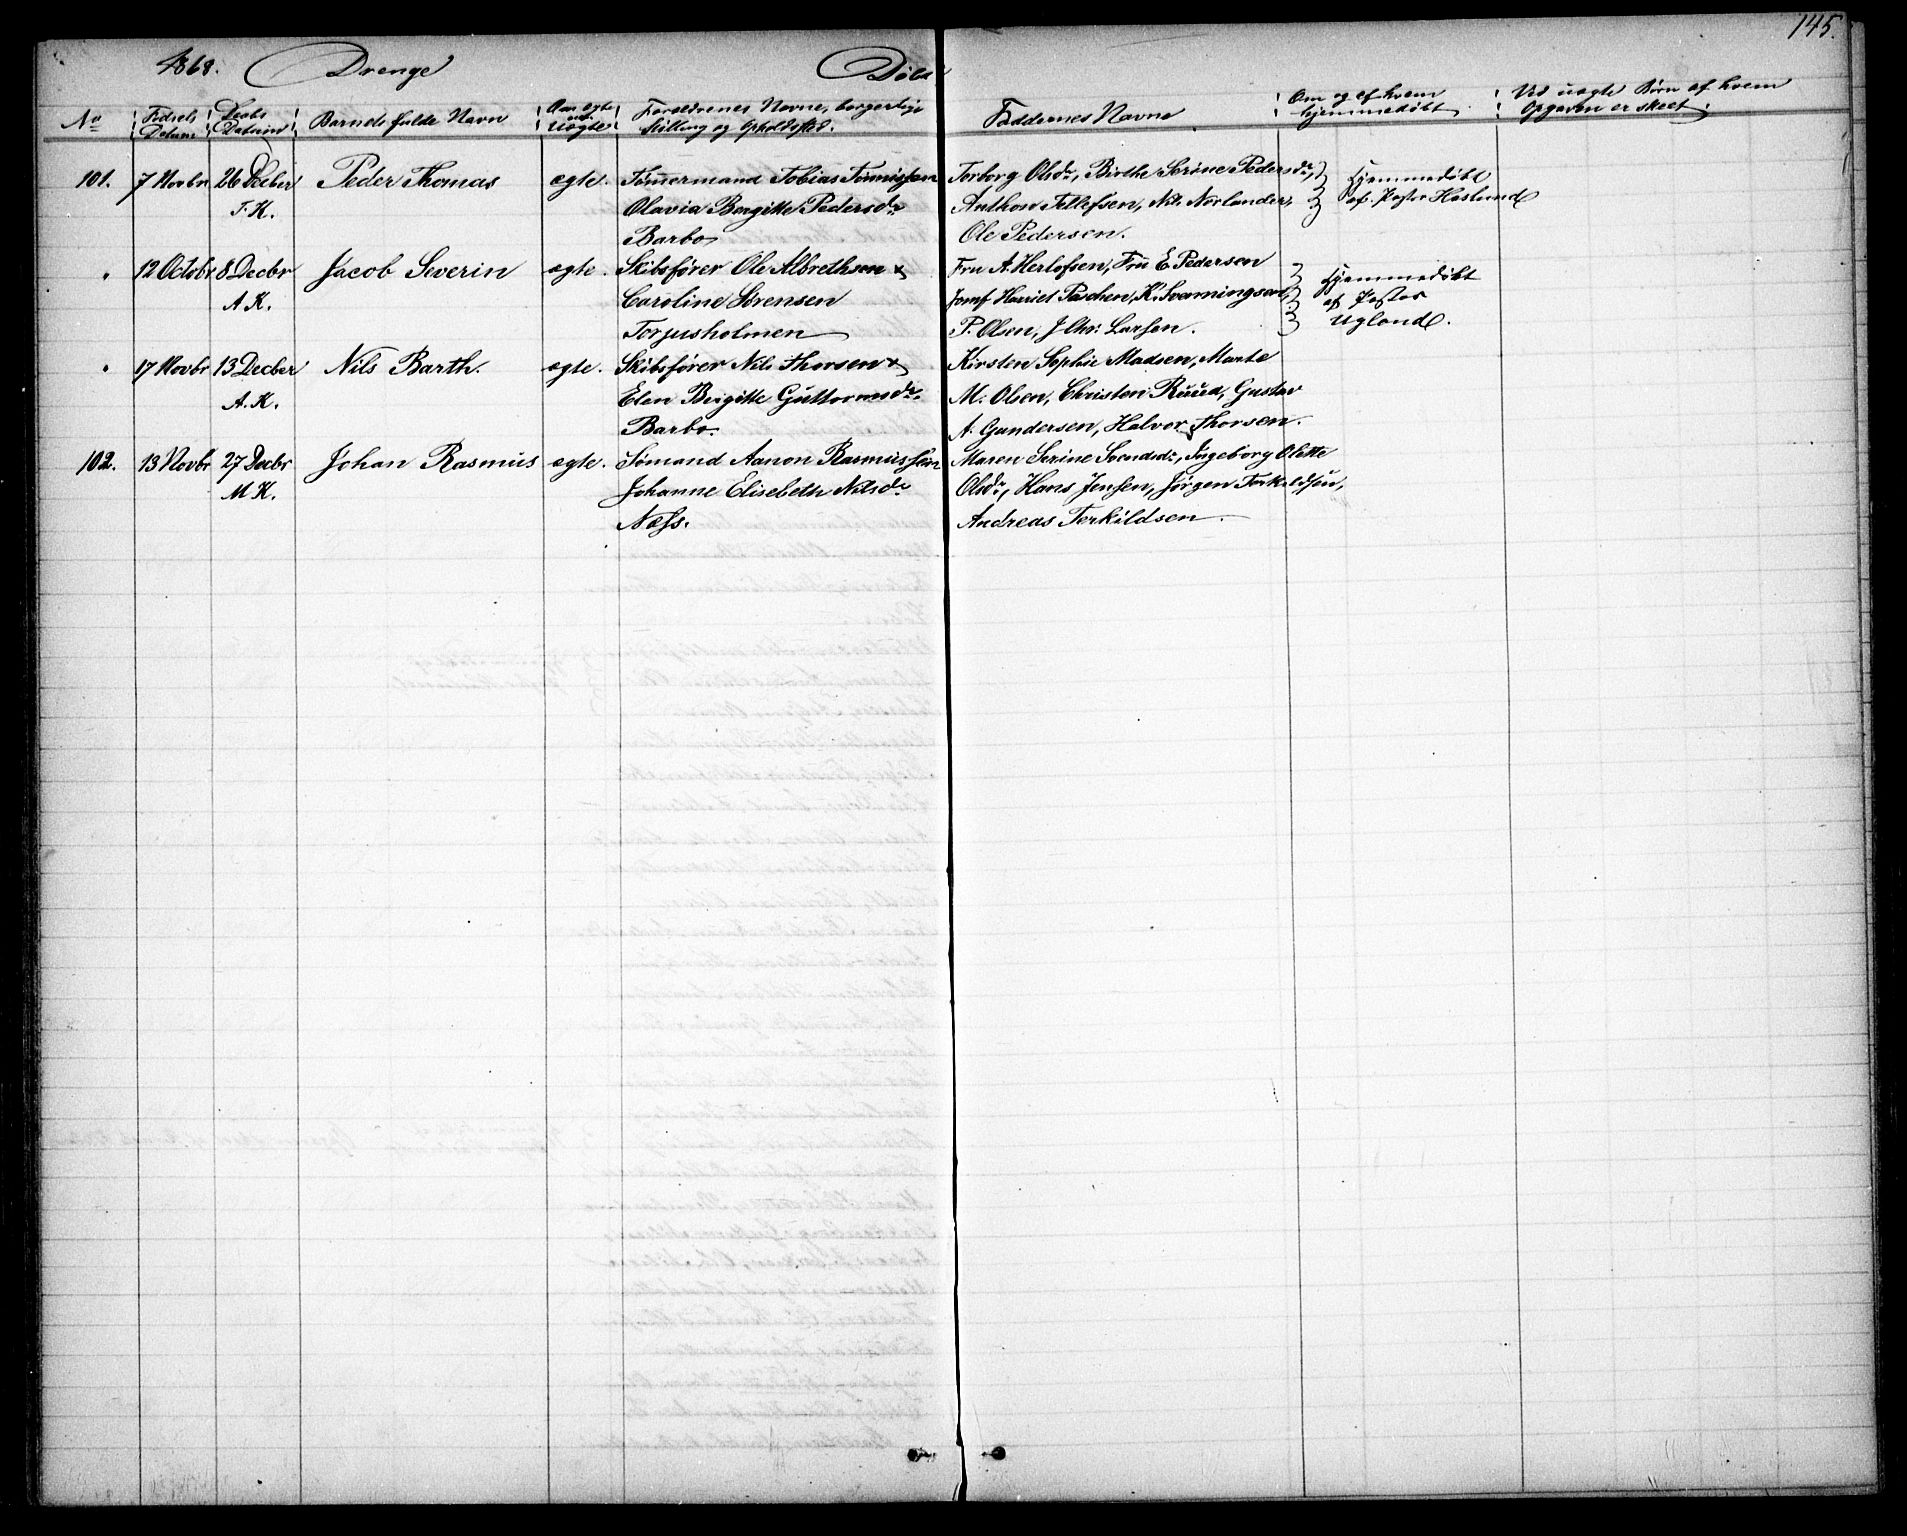 145.
1868. Drenge Døbte
No Fødsels Datum Daabs Datum Barnets fulde Navn Om ægte ell. uægte Forældrenes Navne, borgerlige Stilling og Opholdssted. Faddernes Navne Om og af hvem hjemmedøbt Ved uægte Børn af hvem Opgaven er skeet.
101. 7 Novbr 26 Decber Peder Thomas ægte. Tømmermand Tobias Tønnissen Torborg Olsdr, Birthe Serine Pedersdr, Hjemmedøbt
F.K. Olavia Bergitte Pedersdr Anthon Tellefsen, Nils Norlander, af Pastor Haslund
Barbo Ole Pedersen.
" 12 Octobr 8 Decbr Jacob Severin ægte. Skibsfører Ole Albrethsen & Fru A. Herlofsen, Fru E. Pedersen Hjemmedøbt
A.K. Caroline Sørensen Jomf Harriet Paschen, K. Svenningsen, af Pastor
Torjusholmen P. Olsen, J. Chr: Larsen. Ugland.
" 17 Novbr 13 Decber Nils Barth. ægte. Skibsfører Nils Thorsen & Kirsten Sophie Madsen, Marte
A.K. Elen Birgitte Guttormsdr. M. Olsen, Christen Ruud, Gustav
Barbo. A. Gundersen, Halvor Thorsen.
102. 13 Novbr 27 Decbr Johan Rasmus ægte. Sømand Aanon Rasmussen Maren Serine Svendsdr, Ingeborg Olette
M.K. Johanne Elisebeth Nilsdr Olsdr, Hans Jensen, Jørgen Terkeldsen,
Næss. Andreas Terkildsen.